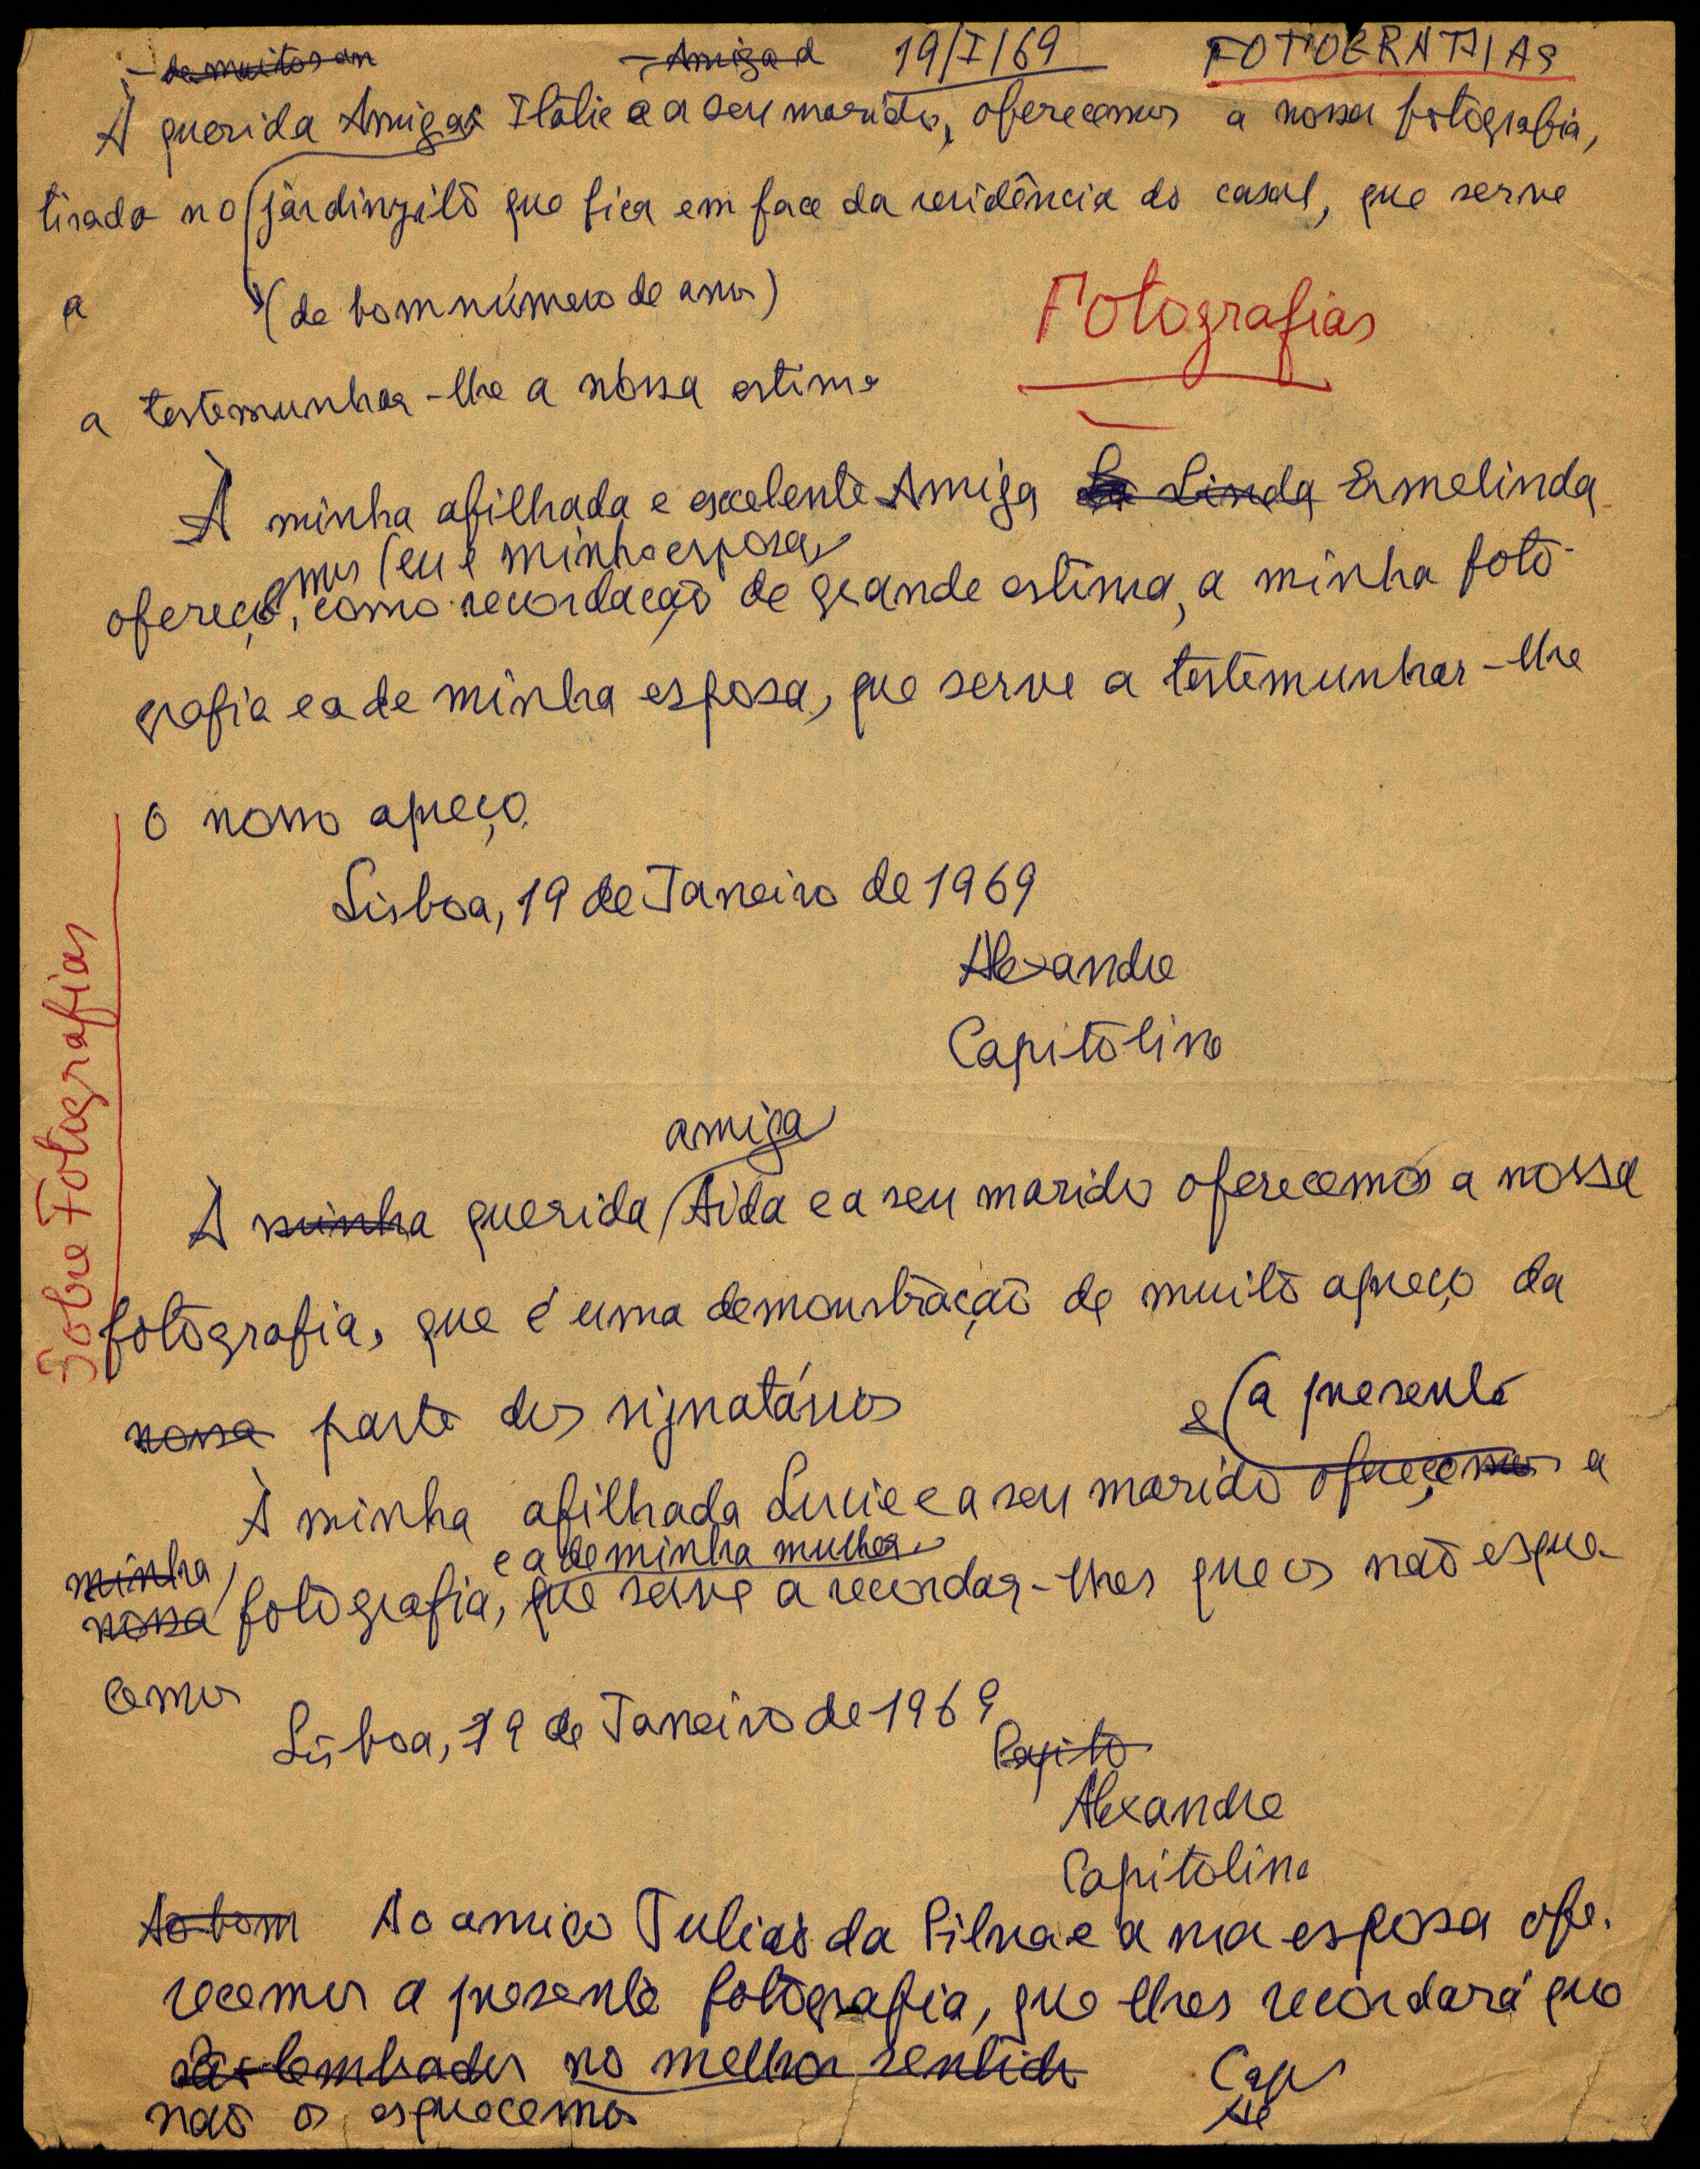 - de muitos an - Amiga d 19/I/69 FOTOGRAFIAS
À querida Amiga Itália e a seu marido, oferecemos a nossa fotografia,
tirada no jardinzito que fica em face da residência do casal, que serve
a (de bom número de anos)
Fotografias
a testemunhar-lhe a nossa estima
À minha afilhada e excelente Amiga Linda Ermelinda
emos (eu e minha esposa
ofereço, como recordação de grande estima, a minha foto-
grafia e a de minha esposa, que serve a testemunhar-lhe
o nosso apreço.
Lisboa, 19 de Janeiro de 1969
Alexandre
Capitolina
Sobre Fotografias
amiga
À minha querida Aida e a seu marido oferecemos a nossa
fotografia, que é uma demonstração de muito apreço da
nossa parte dos signatários
e (a presente
À minha afilhada Lucie e a seu marido ofereçemos a
minha e a de minha mulher
nossa fotografia, que serve a recordar-lhes que os não esque-
cemos
Lisboa, 19 de Janeiro de 1969
Capito
Alexandre
Capitolina
Ao bom Ao amigo Julião da Silva e a sua esposa ofe-
recemos a presente fotografia, que lhes recordará que
são lembrados no melhor sentido Cap
não os esquecemos Ale